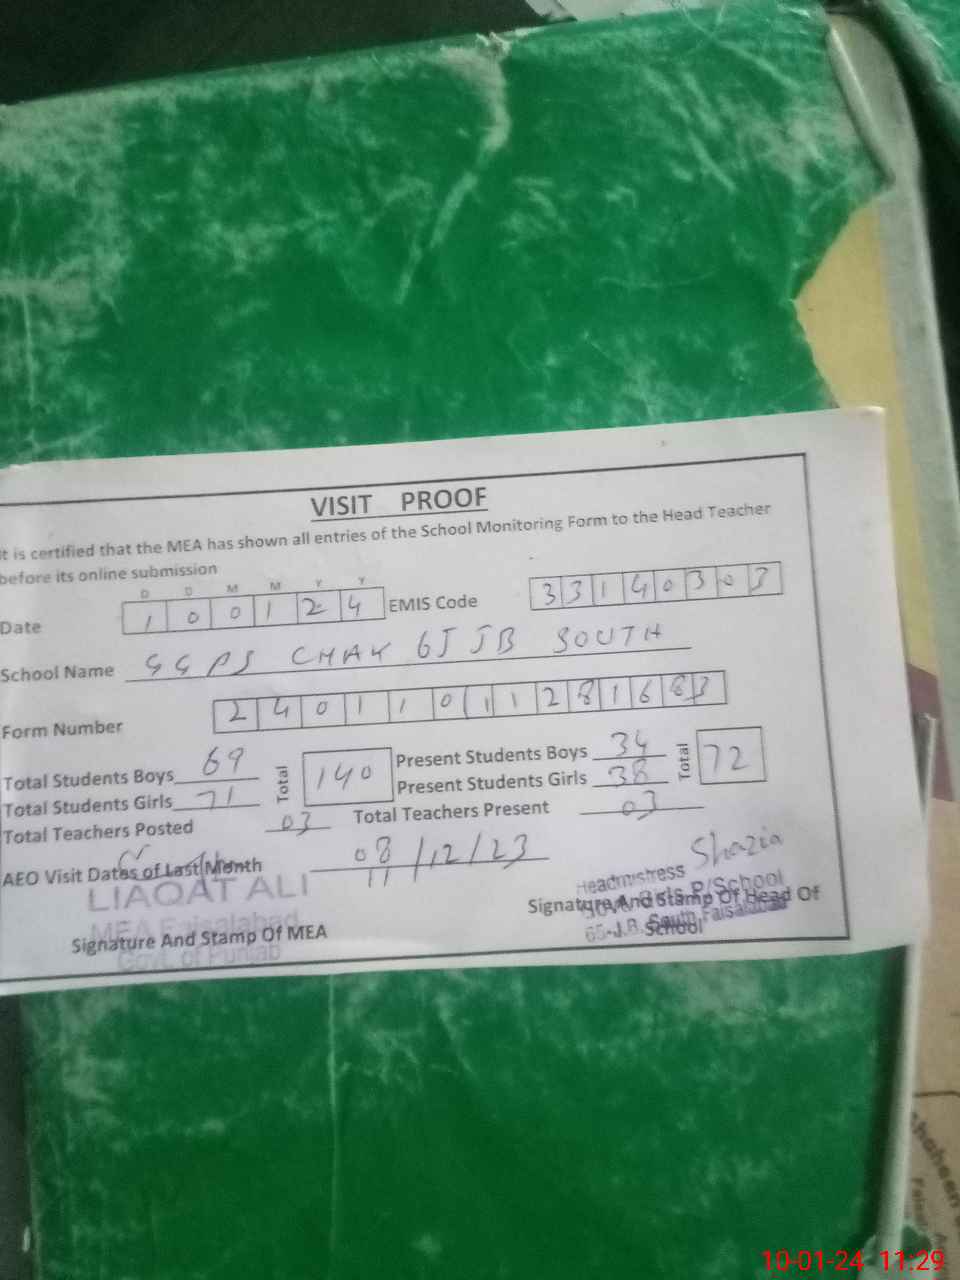 VISIT PROOF
It is certified that the MEA has shown all entries of the School Monitoring Form to the Head Teacher
before its online submission
D D M M Y Y
Date 1 0 0 1 2 4 EMIS Code 3 3 1 4 0 3 0 3
School Name GGPS CHAK 65 JB SOUTH
Form Number 2 4 0 1 1 0 1 1 2 8 1 6 8 3
Total Students Boys 69 Total 140 Present Students Boys 34 Total 72
Total Students Girls 71 Present Students Girls 38
Total Teachers Posted 03 Total Teachers Present 03
AEO Visit Dates of Last Month 08/12/23
11
Shazia
LIAQAT ALI
MEA Faisalabad
Govt. of Punjab
Signature And Stamp Of MEA
Headmistress
Govt. Girls P/School
65-J.B. South, Faisalabad
Signature And Stamp Of Head Of
School
Shaheen
10-01-24 11:29